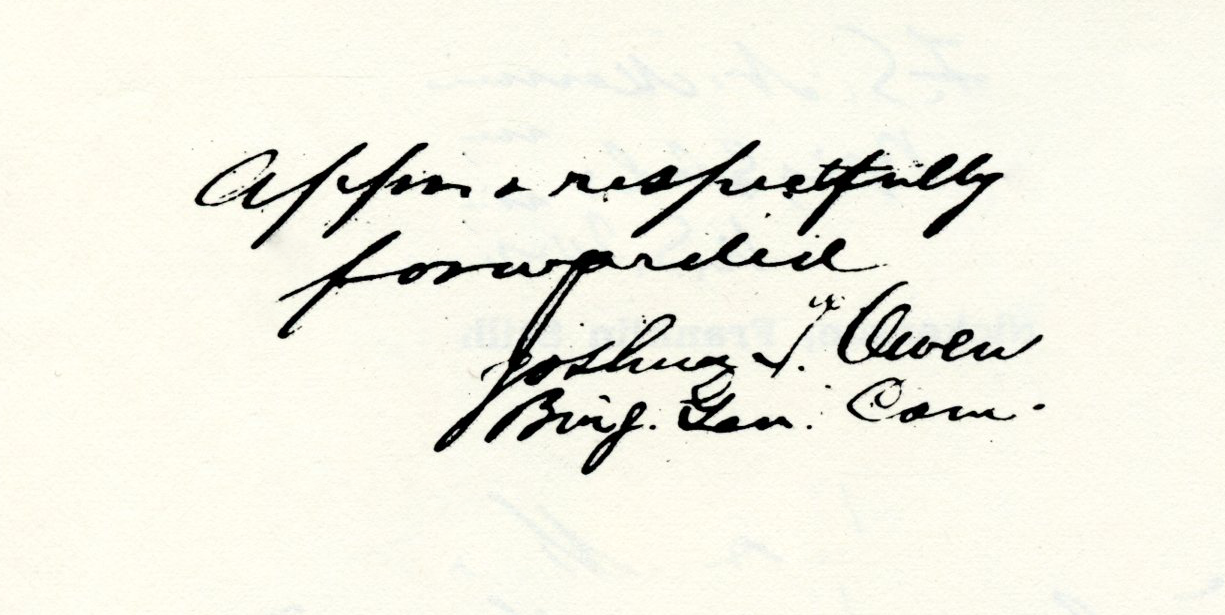 Appro & respectfully
forwarded
Joshua T. Owen
Brig. Gen. Com.